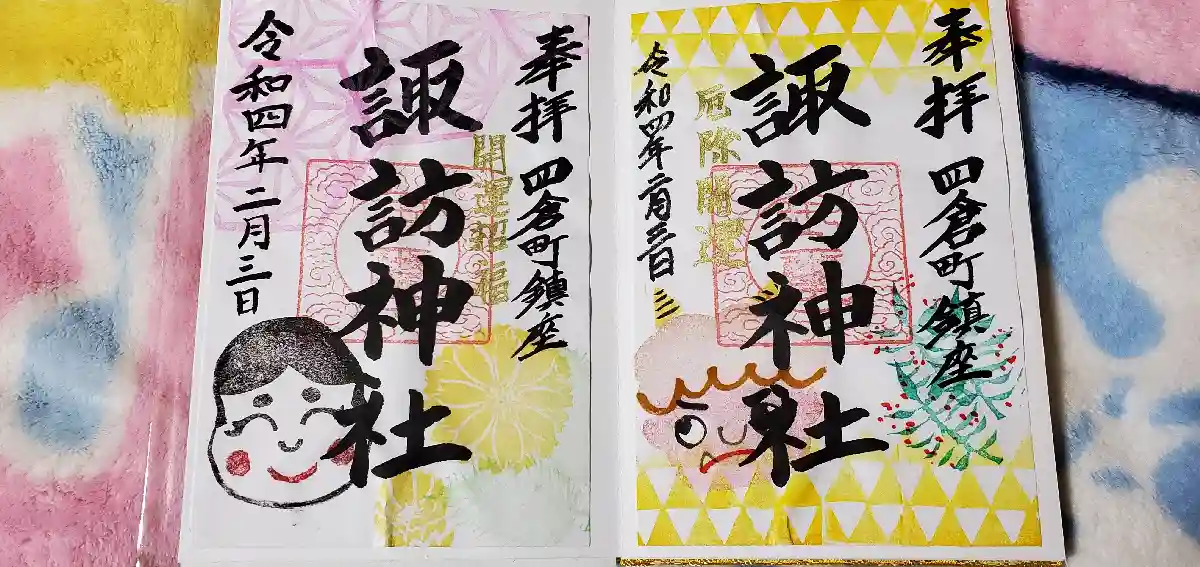 奉拝 四倉町鎮座
厄除開運
諏訪神社
令和四年二月三日
奉拝 四倉町鎮座
開運招福
諏訪神社
令和四年二月三日